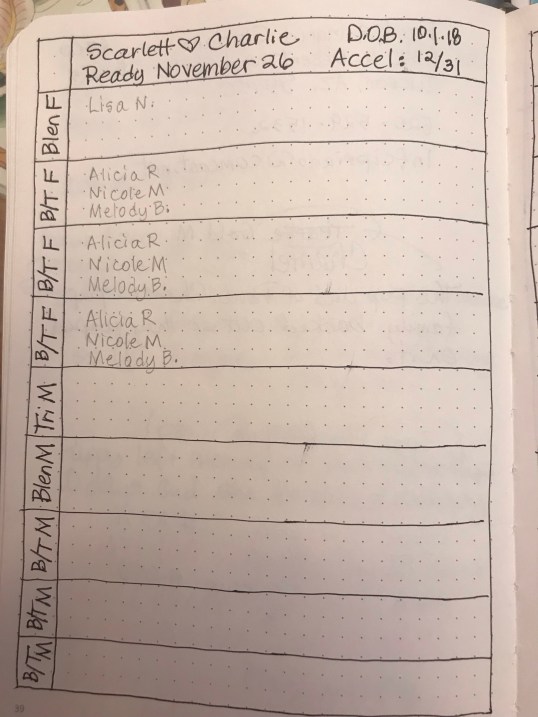 Scarlett ♡ Charlie D.O.B. 10.1.18
Ready November 26 Accel: 12/31
Blen F
Lisa N.
B/T F
Alicia R
Nicole M
Melody B.
B/T F
Alicia R
Nicole M
Melody B.
B/T F
Alicia R
Nicole M
Melody B.
Tri M
Blen M
B/T M
B/T M
B/T M